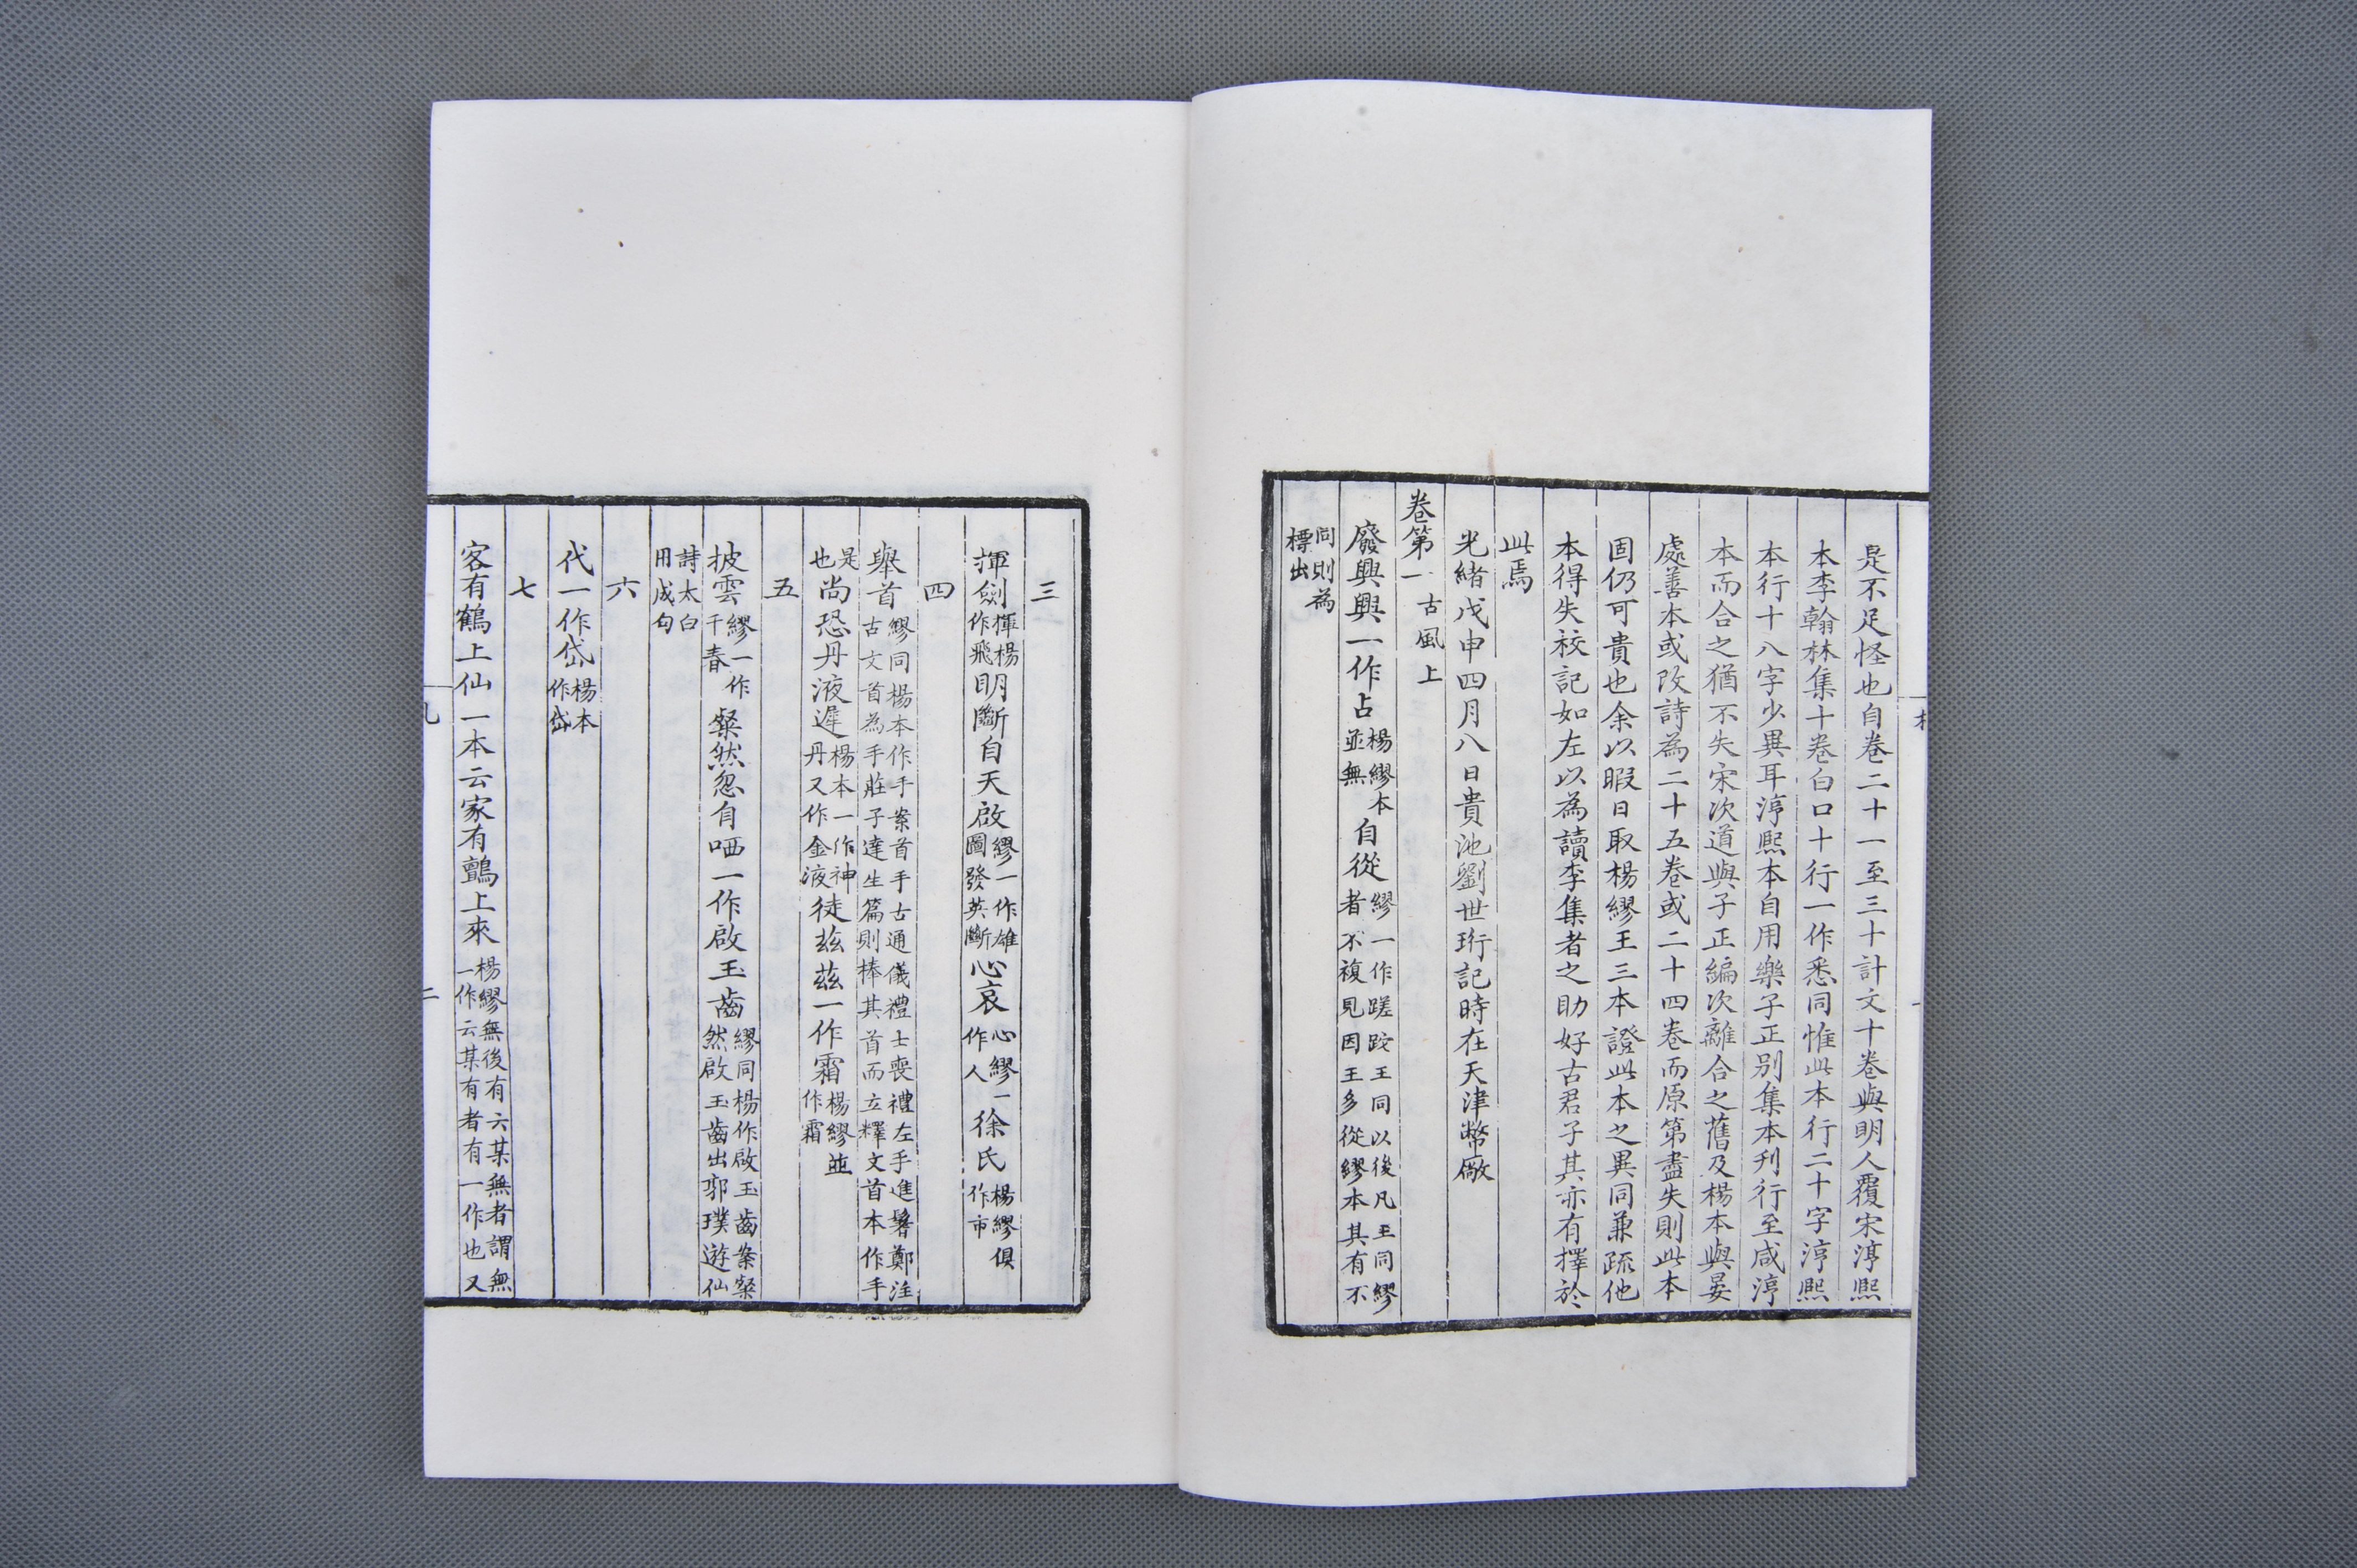 是不足怪也自卷二十一至三十計文十卷與明人覆宋淳熙
本李翰林集十卷白口十行一作悉同惟此本行二十字淳熙
本行十八字少異耳淳熙本自用樂子正別集本刊行至咸淳
本而合之猶不失宋次道與子正編次離合之舊及楊本與晏
處善本或改詩為二十五卷或二十四卷而原第盡失則此本
固仍可貴也余以暇日取楊繆王三本證此本之異同兼疏他
本得失校記如左以為讀李集者之助好古君子其亦有擇於
此焉
光緒戊申四月八日貴池劉世珩記時在天津幣廠
卷第一 古風上
廢興興一作占楊繆本並無自從繆一作蹉跎王同以後凡王同繆者不複見因王多從繆本其有不
同則為標出
三
揮劍揮楊作飛明斷自天啟繆一作雄圖發英斷心哀心繆一作人徐氏楊繆俱作市
四
舉首繆同楊本作手案首手古通儀禮士喪禮左手進鬐鄭注古文首為手莊子達生篇則捧其首而立釋文首本作手
是也尚恐丹液遲楊本一作神丹又作金液徒茲茲一作霜楊繆並作霜
五
披雲繆一作千春粲然忽自哂一作啟玉齒繆同楊作啟玉齒案粲然啟玉齒出郭璞遊仙
詩太白用成句
六
代一作岱楊本作岱
七
客有鶴上仙一本云家有鸇上來楊繆無後有云某無者謂無一作云某有者有一作也又
二